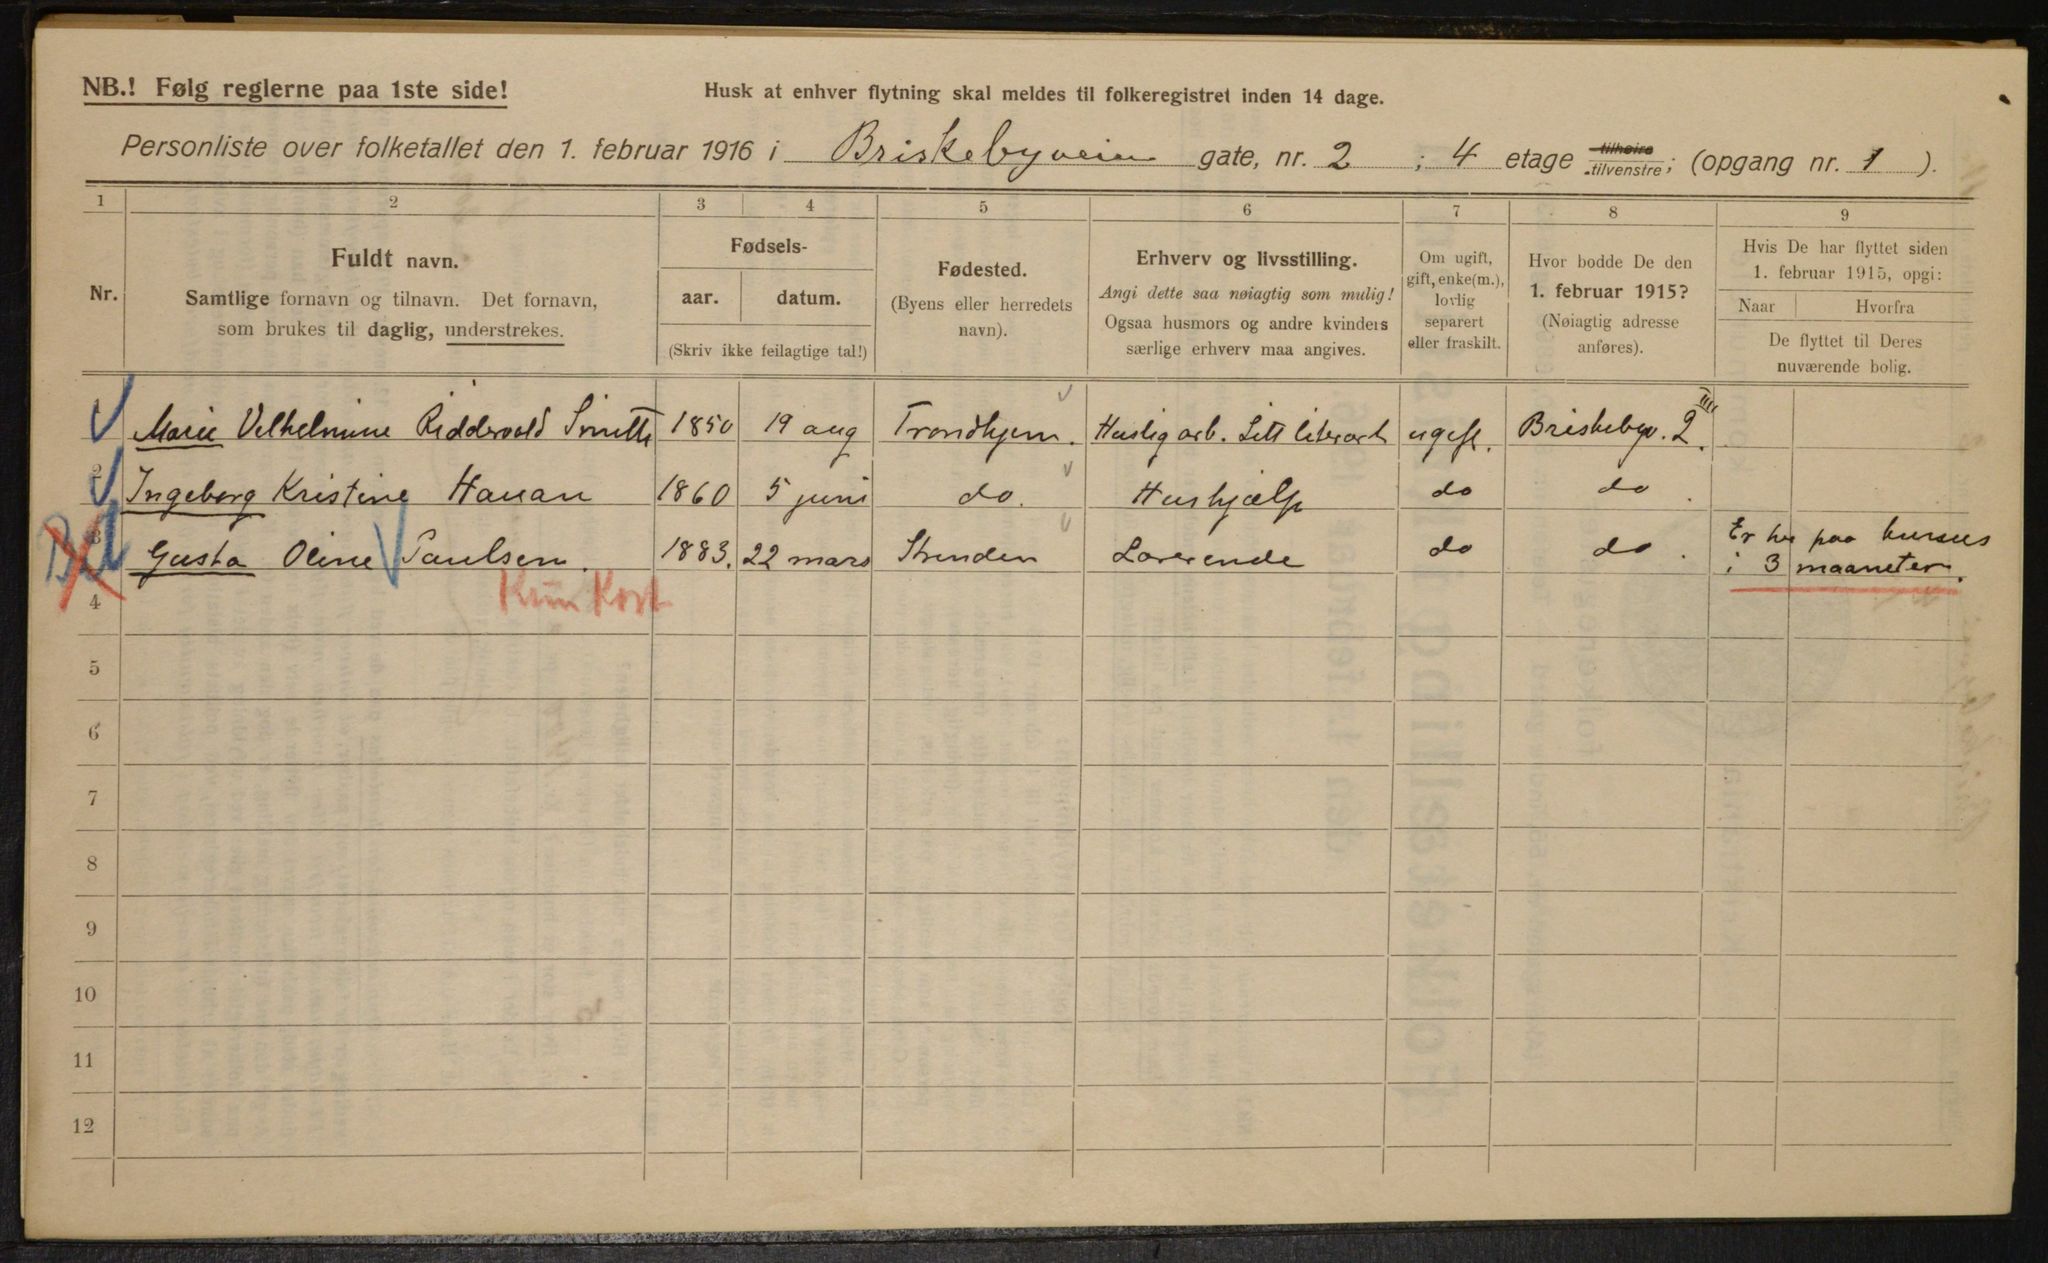 NB.! Følg reglerne paa 1ste side!
Husk at enhver flytning skal meldes til folkeregistret inden 14 dage.
Personliste over folketallet den 1. februar 1916 i Briskebyveien gate, nr. 2 ; 4 etage tilhøire tilvenstre; (opgang nr. 1 ).
1 2 3 4 5 6 7 8 9
Nr.
Fuldt navn.
Samtlige fornavn og tilnavn. Det fornavn,
som brukes til daglig, understrekes.
Fødsels-
aar. datum.
(Skriv ikke feilagtige tal!)
Fødested.
(Byens eller herredets
navn).
Erhverv og livsstilling.
Angi dette saa nøiagtig som mulig!
Ogsaa husmors og andre kvinders
særlige erhverv maa angives.
Om ugift,
gift, enke(m.),
lovlig
separert
eller fraskilt.
Hvor bodde De den
1. februar 1915?
(Nøiagtig adresse
anføres).
Hvis De har flyttet siden
1. februar 1915, opgi:
Naar Hvorfra
De flyttet til Deres
nuværende bolig.
1 Marie Vilhelmine Riddervold Smith 1850 19 aug Trondhjem. Huslig arb. Litt literært ugift. Briskebyv. 2 IIII
2 Ingeborg Kristine Hauan 1860 5 juni do. Hushjælp do do.
3 Gusta Oline Paulsen. 1883. 22 mars Strinden Lærerinde do do. Er her paa kursus
i 3 maaneter.
Kun Kort
4
5
6
7
8
9
10
11
12